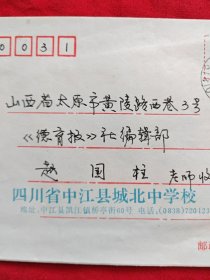 0 0 3 1
山西省太原市黄陵路西巷3号
《德育报》社编辑部
赵国柱 老师收
四川省中江县城北中学校
地址:中江县凯江镇桥亭街60号 电话:(0838)720123
邮